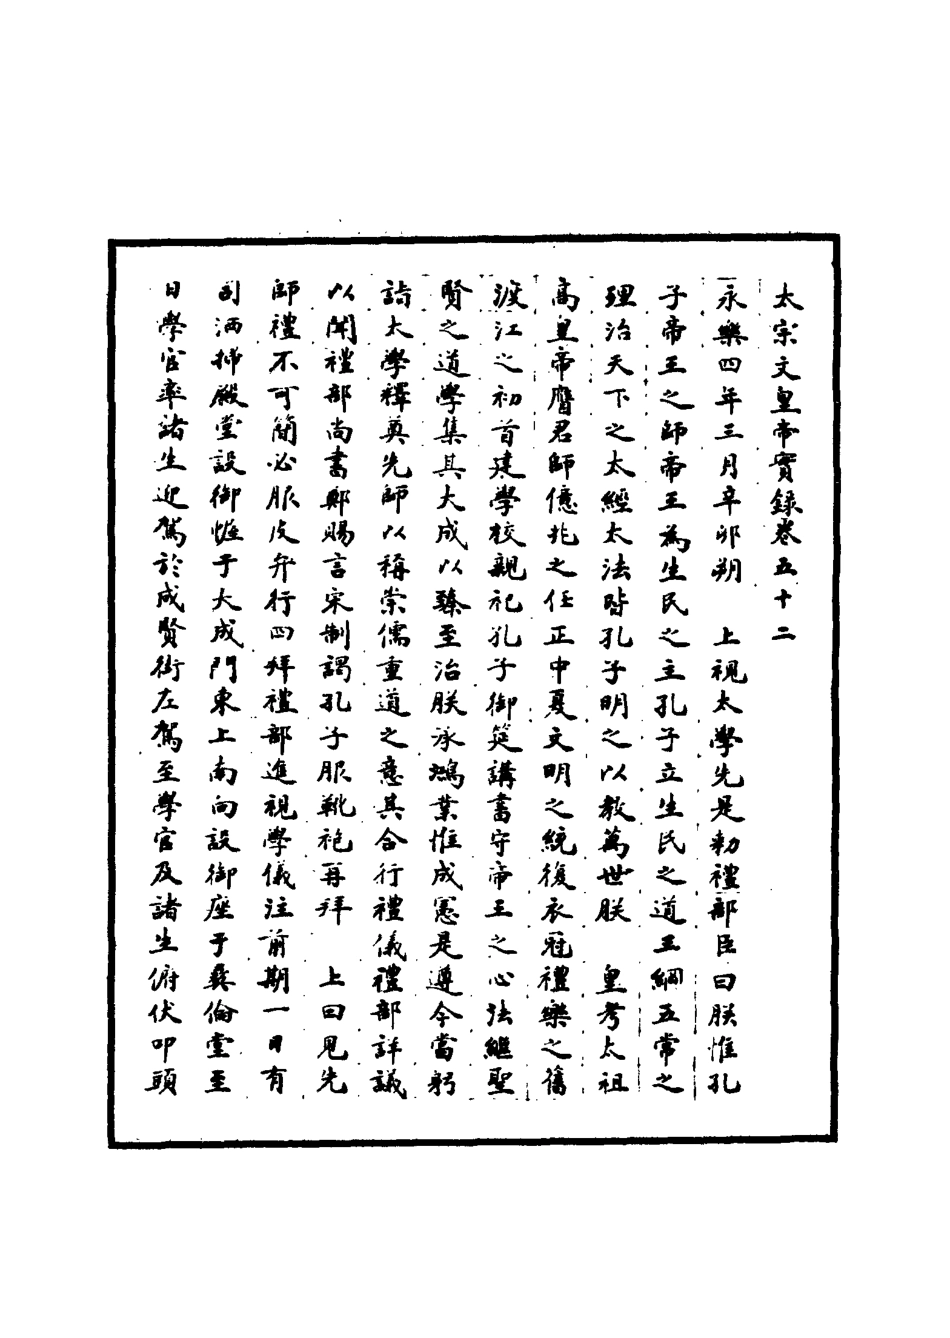 太宗文皇帝實錄卷五十二
永樂四年三月辛卯朔　上視太學先是勑禮部臣曰朕惟孔
子帝王之師帝王為生民之主孔子立生民之道三綱五常之
理治天下之大經大法皆孔子明之以教萬世朕　皇考太祖
高皇帝膺君師億兆之任正中夏文明之統復衣冠禮樂之舊
渡江之初首建學校親祀孔子御筵講書守帝王之心法繼聖
賢之道學集其大成以臻至治朕承鴻業惟成憲是遵今當躬
詣太學釋奠先師以稱崇儒重道之意其合行禮儀禮部詳議
以聞禮部尚書鄭賜言宋制謁孔子服靴袍再拜　上曰見先
師禮不可簡必服皮弁行四拜禮禮部進視學儀注前期一日有
司洒掃殿堂設御幄于大成門東上南向設御座于彞倫堂至
日學官率諸生迎駕於成賢街左駕至學官及諸生俯伏叩頭